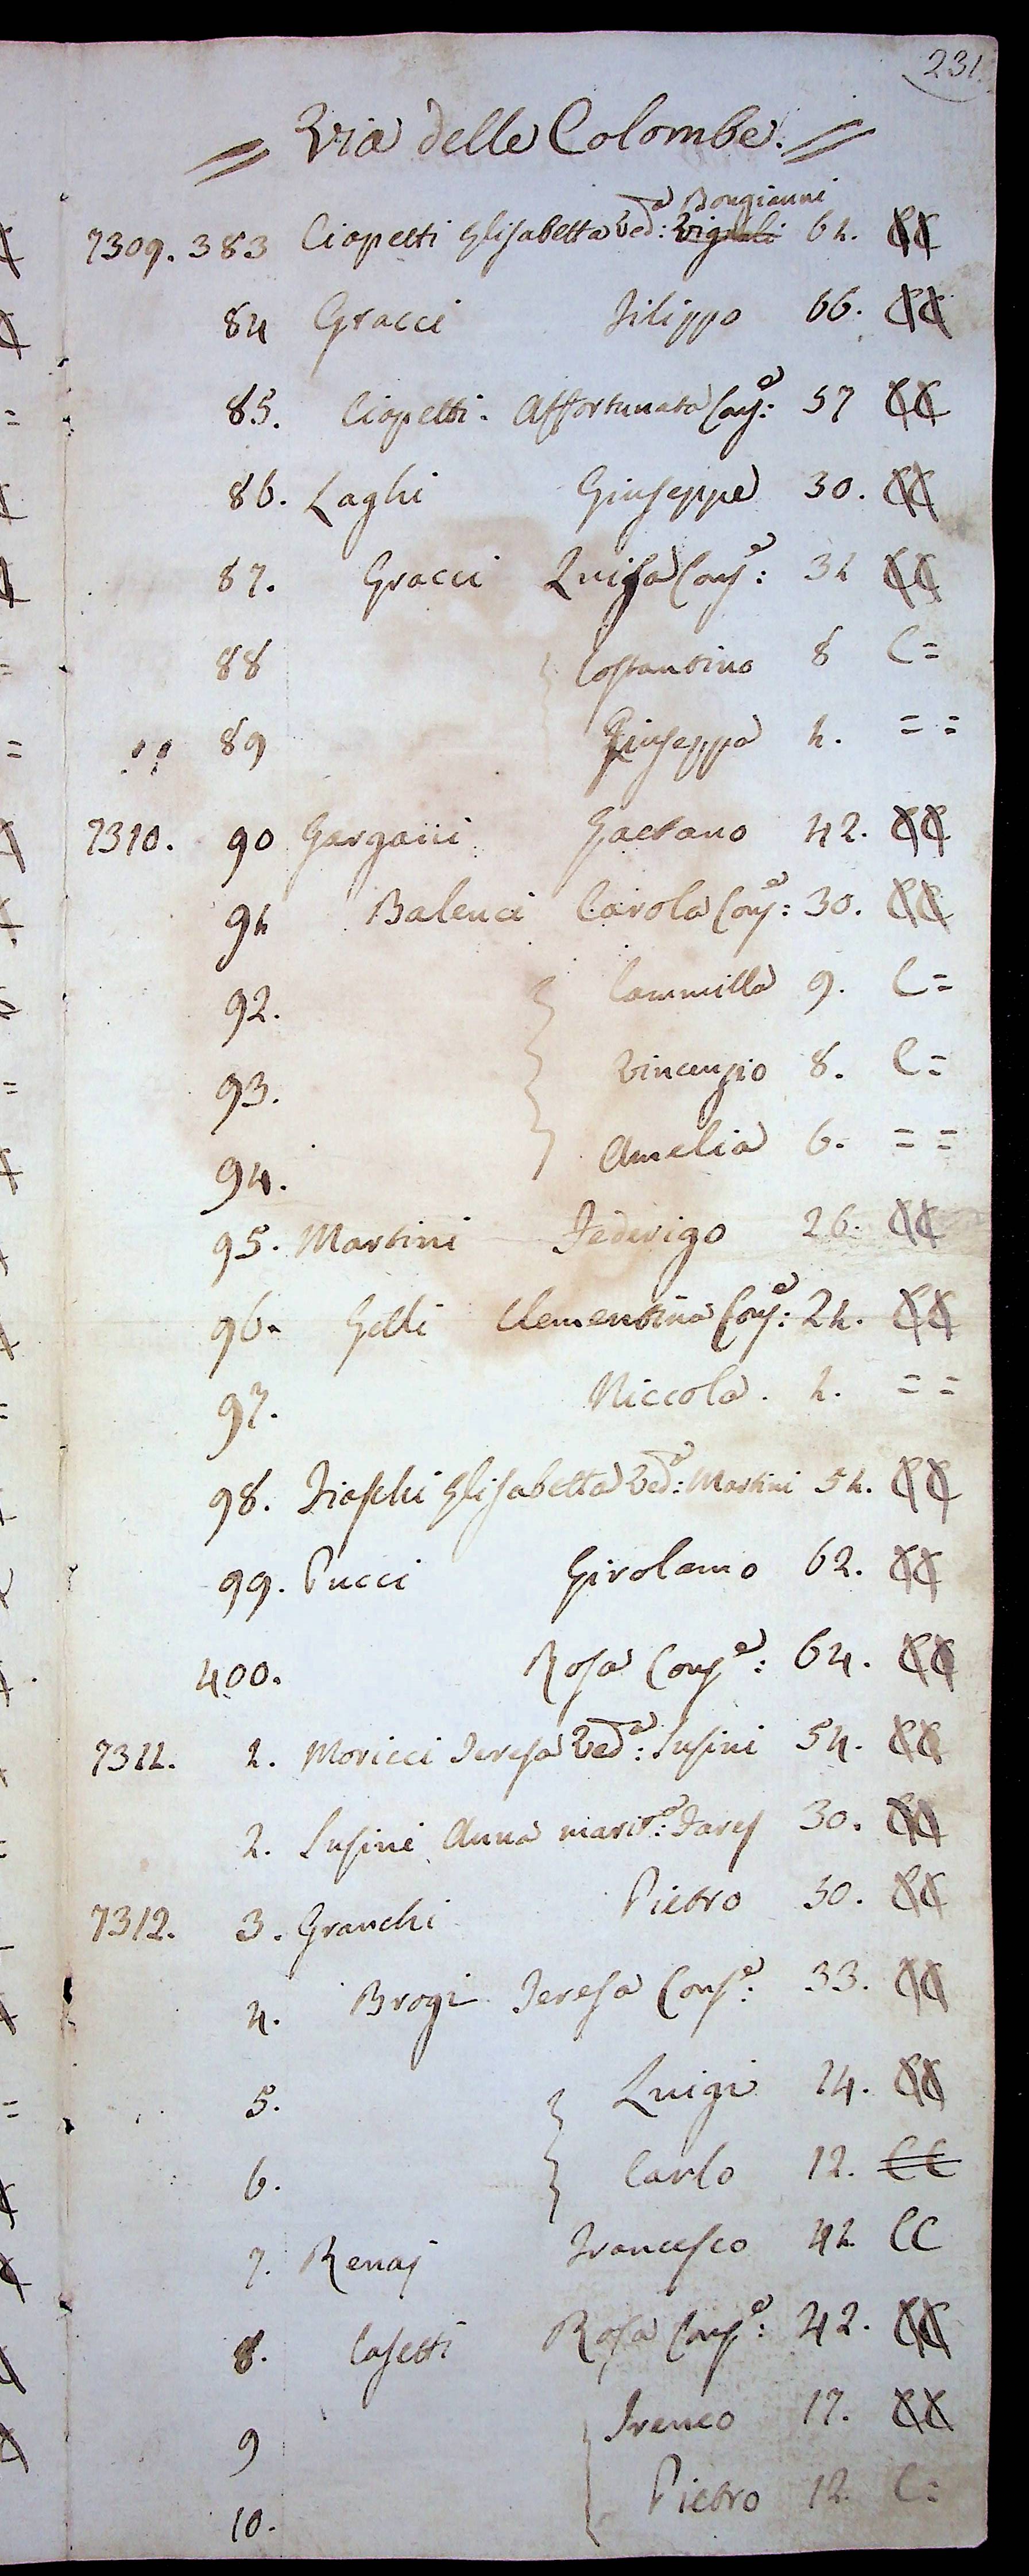 231.
Via delle Colombe.
Bongianni
7309. 383 Ciapetti Elisabetta Ved:a Vignali 61. CC
84 Gracci Filippo 66. CC
85. Ciapetti Affortunata Conj:e 57 CC
86. Laghi Giuseppe 30. CC
87. Gracci Luisa Conj:e 31 CC
88 Costantino 8 C=
89 Giuseppa 1. = =
7310. 90 Gargani Gaetano 42. CC
91 Balenci Carola Conj:e 30. CC
92. Cammilla 9. C=
93. Vincenzio 8. C=
94. Amelia 6. = =
95. Martini Federigo 26. CC
96. Gelli Clementina Conj:e 21. CC
97. Niccola. 1. = =
98. Fiaschi Elisabetta Ved:a Martini 51. CC
99. Pucci Girolamo 62. CC
400. Rosa Conj:e 64. CC
7311. 1. Moricci Teresa Ved:a Susini 54. CC
2. Susini Anna marit:a 30. CC
7312. 3. Granchi Pietro 50. CC
4. Brogi Teresa Conj:e 33. CC
5. Luigi 14. CC
6. Carlo 12. CC
7. Renaj Francesco 41 CC
8. Casetti Rosa Conj:e 42. CC
9 Ireneo 17. CC
10. Pietro 12. C=